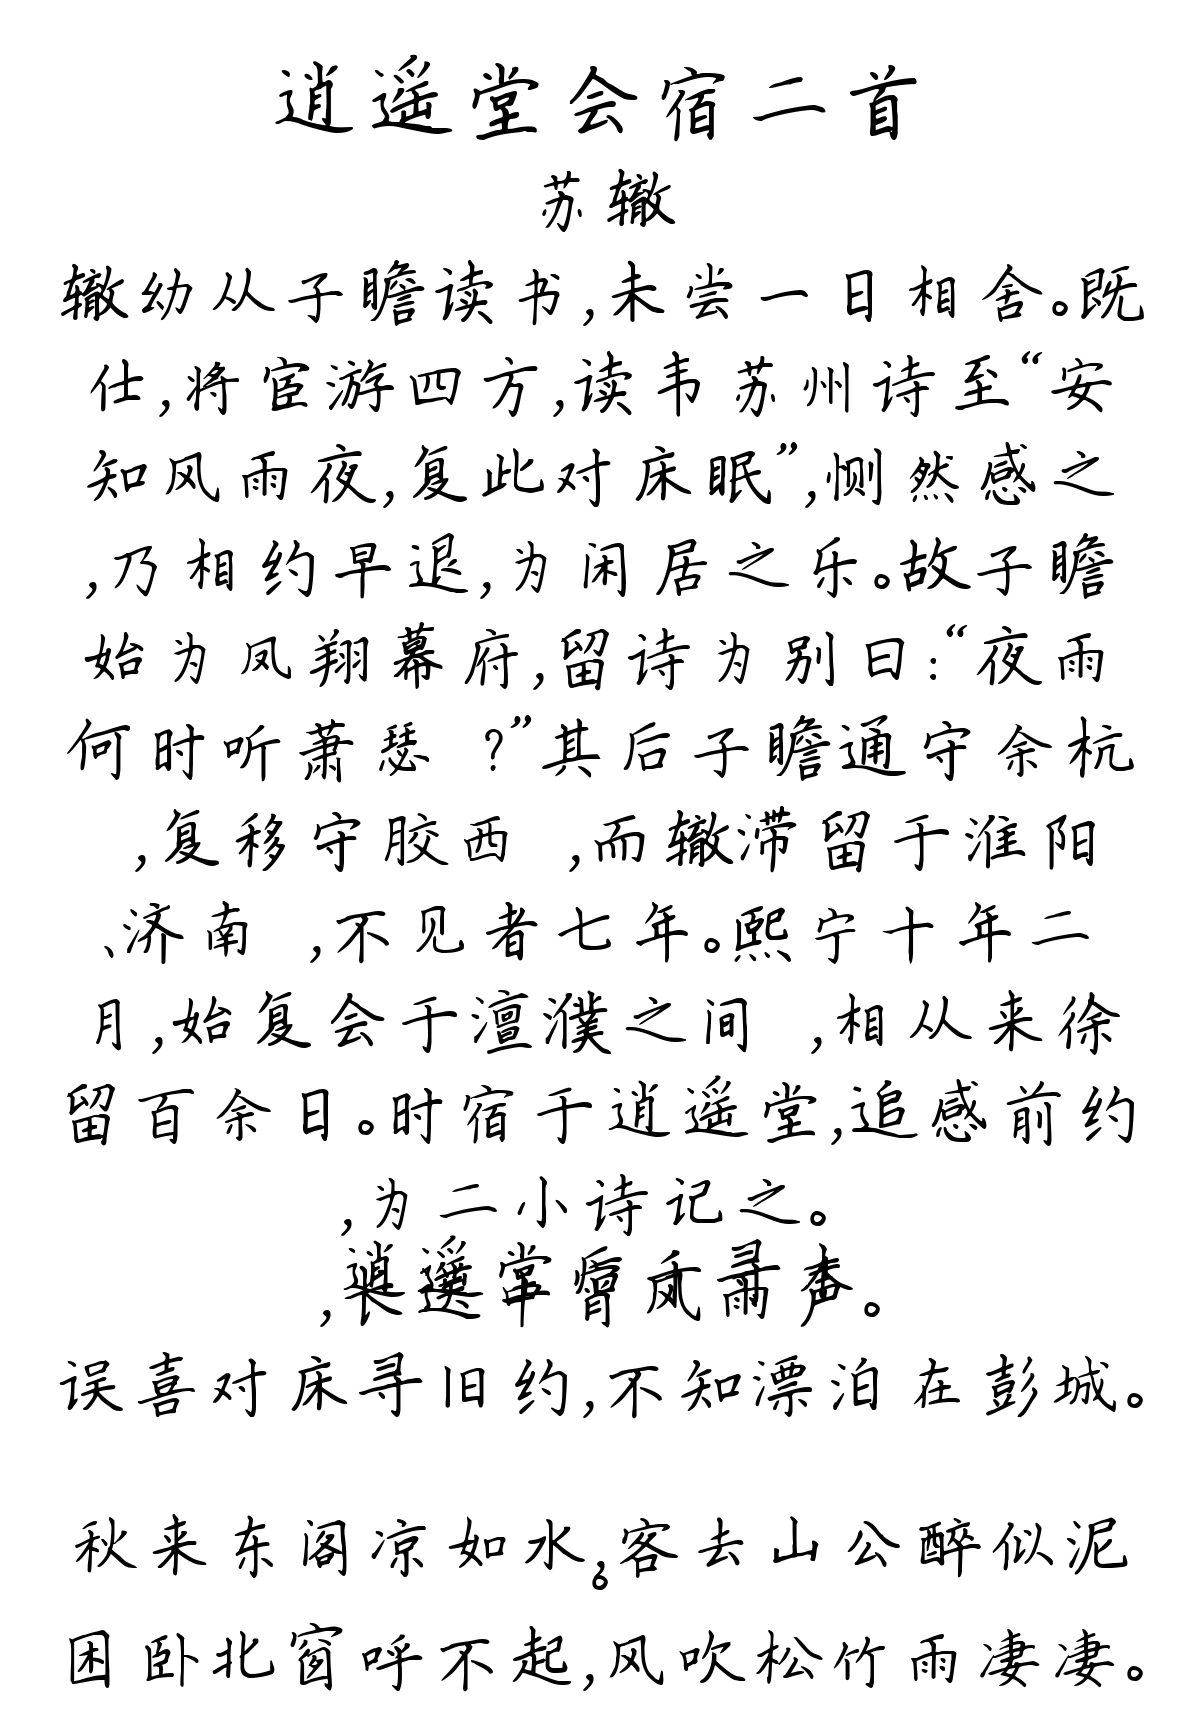 逍遥堂会宿二首
苏辙
辙幼从子瞻读书,未尝一日相舍。既
仕,将宦游四方,读韦苏州诗至“安
知风雨夜,复此对床眠”,恻然感之
,乃相约早退,为闲居之乐。故子瞻
始为凤翔幕府,留诗为别曰:“夜雨
何时听萧瑟 ?”其后子瞻通守余杭
,复移守胶西 ,而辙滞留于淮阳
、济南 ,不见者七年。熙宁十年二
月,始复会于澶濮之间 ,相从来徐
留百余日。时宿于逍遥堂,追感前约
,为二小诗记之。
逍遥堂后千寻木
,长送中宵风雨声。
误喜对床寻旧约,不知漂泊在彭城。
秋来东阁凉如水,客去山公醉似泥
。
困卧北窗呼不起,风吹松竹雨凄凄。